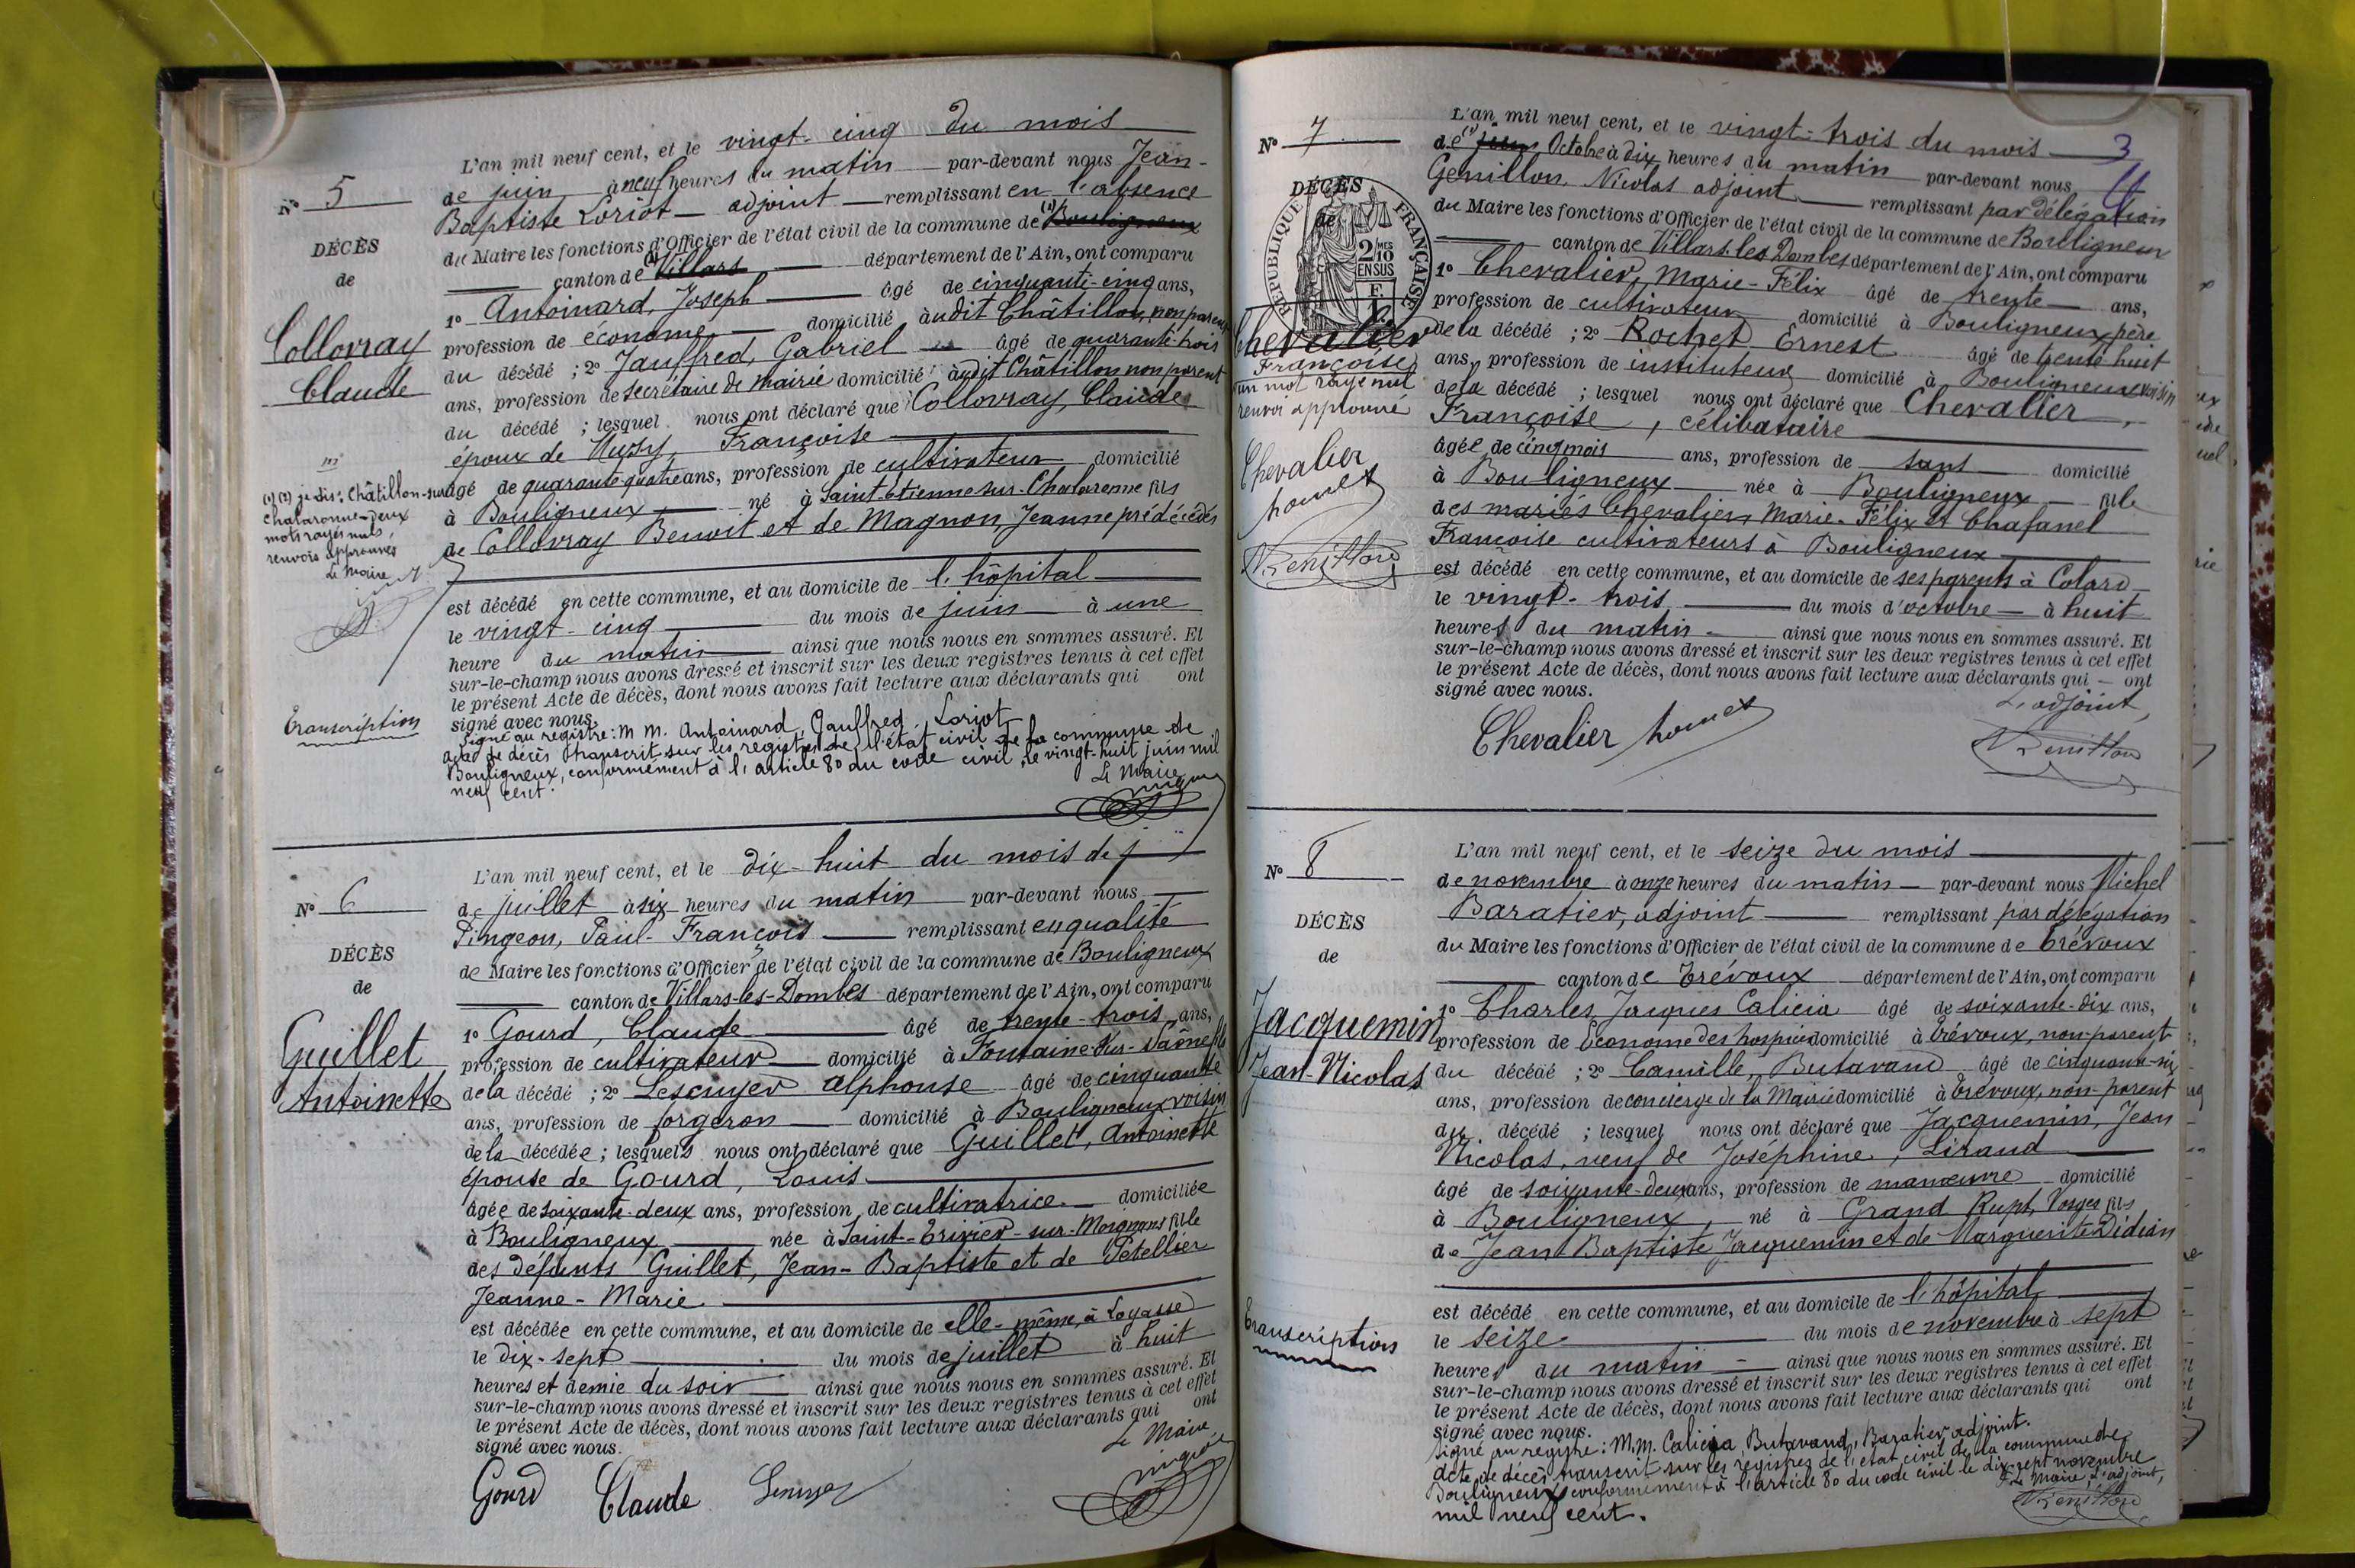 N° 5
DÉCÈS
de
Collovray
Claude
(1)(2) je dis: Châtillon-sur
Chalaronne - deux
mots rayés nuls,
renvois approuvés
Le Maire
Transcription
L'an mil neuf cent, et le vingt-cinq du mois
de juin à neuf heures du matin par-devant nous Jean-
Baptiste Loriot adjoint remplissant en l'absence
du Maire les fonctions d'Officier de l'état civil de la commune de (1) Bouligneux
canton de (2) Villars département de l'Ain, ont comparu
1° Antoinard, Joseph âgé de cinquante-cinq ans,
profession de économe domicilié audit Châtillon, non parent
du décédé ; 2° Jauffred, Gabriel âgé de quarante-trois
ans, profession de secrétaire de Mairie domicilié audit Châtillon non parent
du décédé ; lesquel nous ont déclaré que Collovray, Claude
époux de Françoise
âgé de quarante-quatre ans, profession de cultivateur domicilié
à Bouligneux né à Saint-Etienne-sur-Chalaronne fils
de Collovray Benoit et de Magnon, Jeanne prédécédés
est décédé en cette commune, et au domicile de l'hôpital
le vingt-cinq du mois de juin à une
heure du matin ainsi que nous nous en sommes assuré. Et
sur-le-champ nous avons dressé et inscrit sur les deux registres tenus à cet effet
le présent Acte de décès, dont nous avons fait lecture aux déclarants qui ont
signé avec nous.
Signé au registre: M M. Antoinard, Gauffred, Loriot
acte de décès transcrit sur les registres de l'état civil de la commune de
Bouligneux, conformément à l'article 80 du code civil, le vingt-huit juin mil
neuf cent.
Le Maire
N° 6
DÉCÈS
de
Guillet
Antoinette
L'an mil neuf cent, et le dix-huit du mois de j
de juillet à six heures du matin par-devant nous
Pingeon, Paul-François remplissant en qualité
de Maire les fonctions d'Officier de l'état civil de la commune de Bouligneux
canton de Villars-les-Dombes département de l'Ain, ont comparu
1° Gourd, Claude âgé de trente-trois ans,
profession de cultivateur domicilié à Fontaine-sur-Saône fils
de la décédé ; 2° Lescuyer Alphonse âgé de cinquante
ans, profession de forgeron domicilié à Bouligneux voisin
de la décédée ; lesquels nous ont déclaré que Guillet, Antoinette
épouse de Gourd, Louis
âgée de soixante-deux ans, profession de cultivatrice domiciliée
à Bouligneux née à Saint-Trivier-sur-Moignans fille
des défunts Guillet, Jean-Baptiste et de Petellier
Jeanne-Marie
est décédée en cette commune, et au domicile de elle-même, à Loyasse
le dix-sept du mois de juillet à huit
heures et demie du soir ainsi que nous nous en sommes assuré. Et
sur-le-champ nous avons dressé et inscrit sur les deux registres tenus à cet effet
le présent Acte de décès, dont nous avons fait lecture aux déclarants qui ont
signé avec nous.
Le Maire
Gourd Claude
N° 7
DÉCÈS
de
REPUBLIQUE FRANÇAISE
2 MES 10 EN SUS
Chevalier
Françoise
un mot rayé nul
renvoi approuvé
Chevalier
3
L'an mil neuf cent, et le vingt-trois du mois
de (1) juin Octobre à dix heures du matin par-devant nous
Genillon, Nicolas adjoint remplissant par délégation
du Maire les fonctions d'Officier de l'état civil de la commune de Bouligneux
canton de Villars-les-Dombes département de l'Ain, ont comparu
1° Chevalier, Marie-Félix âgé de trente ans,
profession de cultivateur domicilié à Bouligneux, père
de la décédé ; 2° Rochet Ernest âgé de trente huit
ans, profession de instituteur domicilié à Bouligneux voisin
de la décédé ; lesquel nous ont déclaré que Chevalier,
Françoise, célibataire
âgée de cinq mois ans, profession de sans domicilié
à Bouligneux née à Bouligneux fille
des mariés Chevalier Marie-Félix et Chafanel
Françoise cultivateurs à Bouligneux
est décédé en cette commune, et au domicile de ses parents à Colard
le vingt-trois du mois d'octobre à huit
heures du matin ainsi que nous nous en sommes assuré. Et
sur-le-champ nous avons dressé et inscrit sur les deux registres tenus à cet effet
le présent Acte de décès, dont nous avons fait lecture aux déclarants qui ont
signé avec nous.
L'adjoint,
Chevalier
N° 8
DÉCÈS
de
Jacquemin
Jean-Nicolas
Transcription
L'an mil neuf cent, et le seize du mois
de novembre à onze heures du matin par-devant nous Michel
Baratier, adjoint remplissant par délégation
du Maire les fonctions d'Officier de l'état civil de la commune de Trévoux
canton de Trévoux département de l'Ain, ont comparu
1° Charles, Jacques Calicia âgé de soixante-dix ans,
profession de Econome des hospices domicilié à Trévoux, non parent
du décédé ; 2° Camille, Butavand âgé de cinquante-six
ans, profession de concierge de la Mairie domicilié à Trévoux, non-parent
du décédé ; lesquel nous ont déclaré que Jacquemin, Jean
Nicolas, veuf de Joséphine, Liraud
âgé de soixante-deux ans, profession de manœuvre domicilié
à Bouligneux, né à Grand Rupt, Vosges fils
de Jean Baptiste Jacquemin et de Marguerite Didian
est décédé en cette commune, et au domicile de l'hôpital
le seize du mois de novembre à sept
heures du matin ainsi que nous nous en sommes assuré. Et
sur-le-champ nous avons dressé et inscrit sur les deux registres tenus à cet effet
le présent Acte de décès, dont nous avons fait lecture aux déclarants qui ont
signé avec nous.
Signé au registre: M.M. Calicia, Butavand, Baratier adjoint.
Acte de décès transcrit sur les registres de l'état civil de la commune de
Bouligneux conformément à l'article 80 du code civil le dix-sept novembre
mil neuf cent.
P. Le Maire L'adjoint,